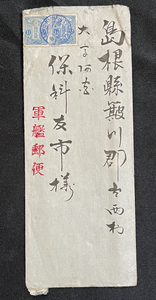 島根縣簸川郡古西村
大字阿宮
保科友市様
軍艦郵便